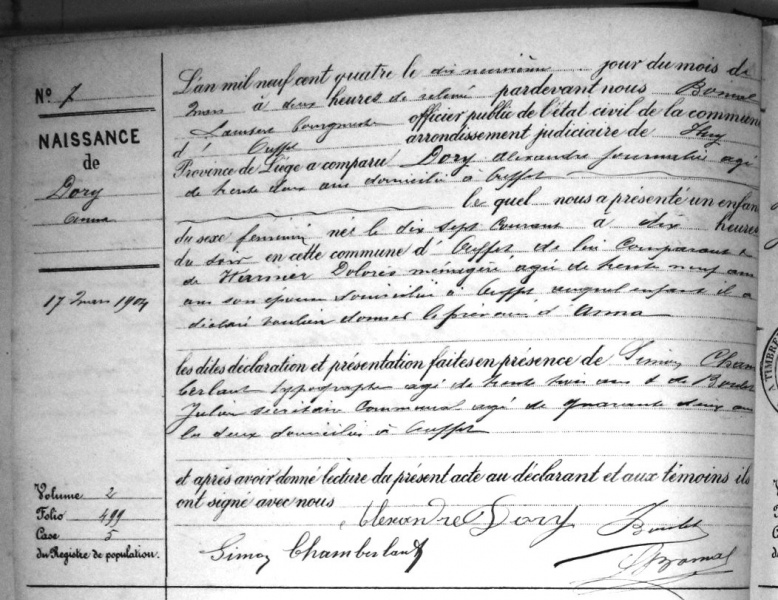 N° 7
NAISSANCE
de
Dory
Anna
17 mars 1904
Volume 2
Folio 499
Case 5
du Registre de population.
L'an mil neuf cent quatre le dix neuvième jour du mois de
mars à deux heures de relevé pardevant nous Bomal
Lambert bourgmestre officier public de l'état civil de la commune
d' Ouffet arrondissement judiciaire de Huy
Province de Liège a comparu Dory Alexandre journalier agé
de trente deux ans domicilié à Ouffet
le quel nous a présenté un enfan
du sexe feminin née le dix sept Courant à dix heures
du soir en cette commune d' Ouffet de lui Comparant &
de Warnier Dolorès ménagère agée de trente neuf ans
ans son épouse domicilié à Ouffet auquel enfant il a
déclaré vouloir donner le prénom d'Anna
les dites déclaration et présentation faites en présence de Simon Cham
berlant typographe agé de trente trois ans & de
Julien secrétaire Communal agé de quarante deux ans
les deux domiciliés à Ouffet
et après avoir donné lecture du présent acte au déclarant et aux témoins ils
ont signé avec nous
Alexandre Dory
Simon Chamberlant
LBomal
TIMBRE